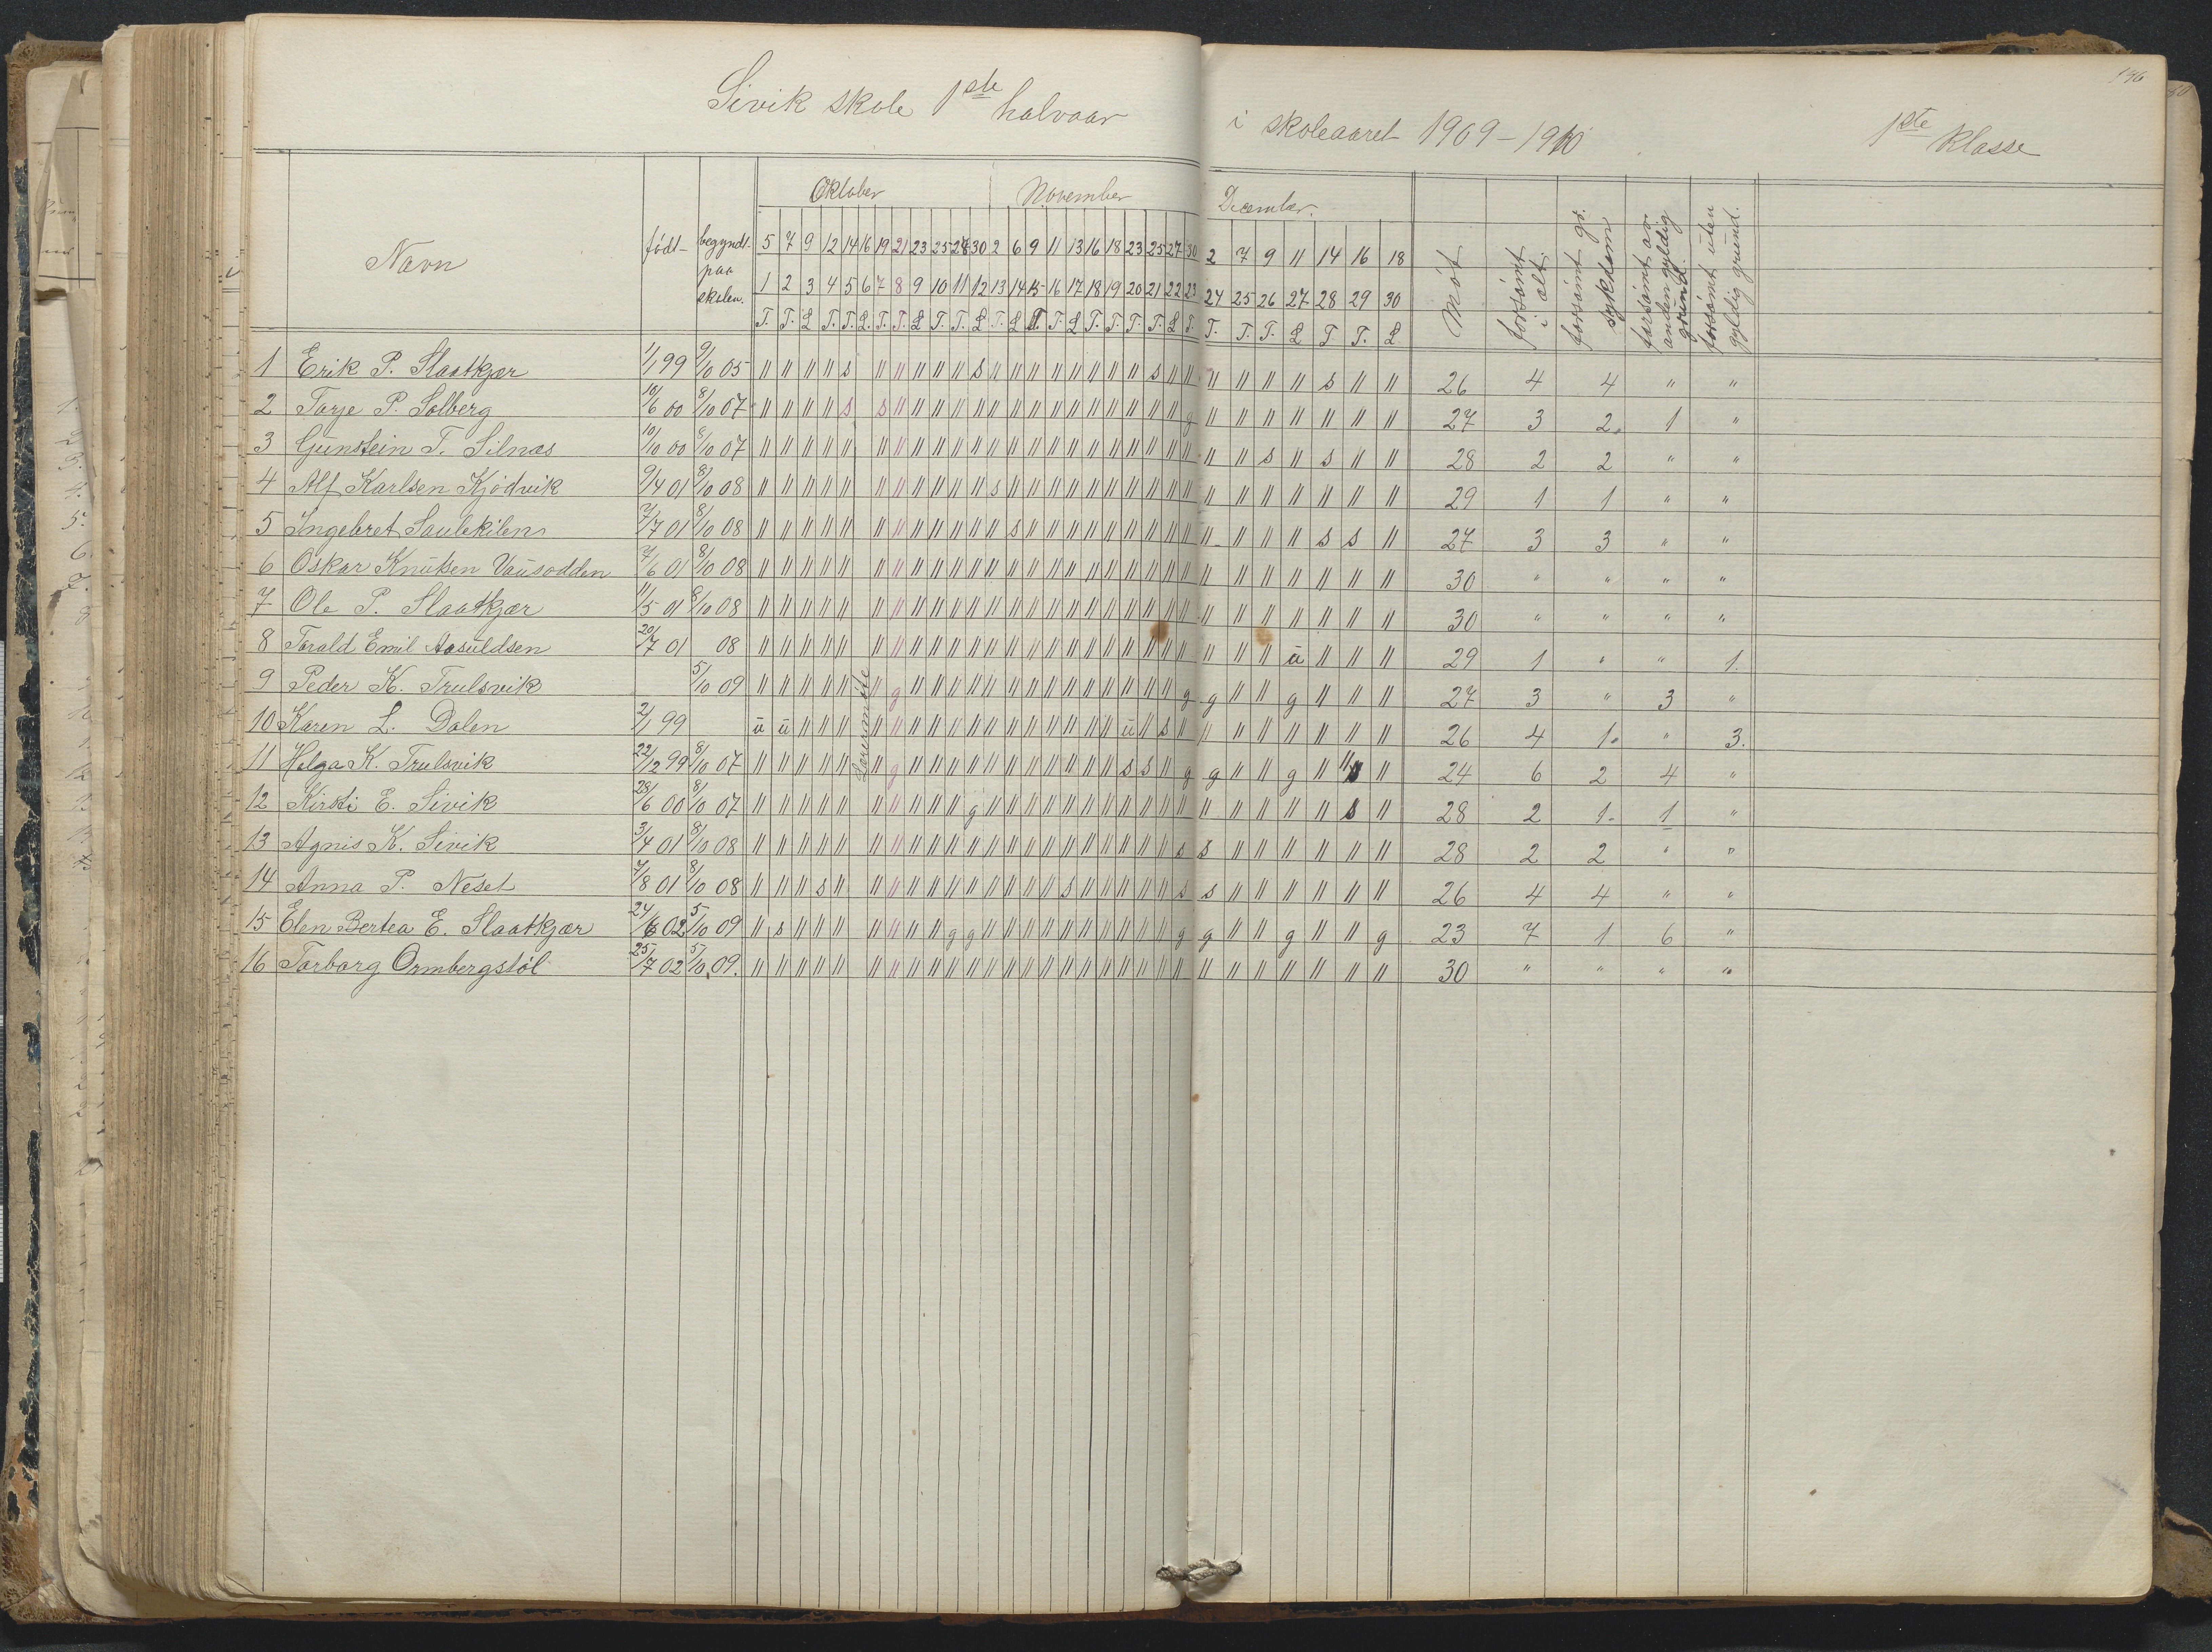 Sivik skole 1ste halvaar i skoleaaret 1909-1910 1ste klasse
146
Navn født begyndt paa skolen. Oktober November December. Møt forsømt i alt. forsømt gr. sykdom forsømt av anden gyldig grund. forsømt uten gyldig grund.
5 7 9 12 14 16 19 21 23 25 28 30 2 6 9 11 13 16 18 23 25 27 30 2 7 9 11 14 16 18
1 2 3 4 5 6 7 8 9 10 11 12 13 14 15 16 17 18 19 20 21 22 23 24 25 26 27 28 29 30
T. T. L T. T. L. T. T. L T. T. L T. L T. L T. T. T. T. L T. T. T. T. L T T. L
1 Erik P. Slaatkjær 1/1 99 9/10 05 " " " " s " " " " " s " " " " " " " " s " " " " " " s " " 26 4 4 " "
2 Torje P. Solberg 10/6 00 8/10 07 " " " " s s " " " " " " " " " " " " " " " g " " " " " " " 27 3 2. 1 "
3 Gunstein T. Silnæs 10/10 00 8/10 07 " " " " " " " " " " " " " " " " " " " " " " " " s " s " " 28 2 2 " "
4 Alf Karlsen Kjødvik 9/4 01 8/10 08 " " " " " " " " " " " s " " " " " " " " " " " " " " " " " 29 1 1 " "
5 Ingebret Saulekilen 7/7 01 8/10 08 " " " " " " " " " " " " s " " " " " " " " " " " " " s s " 27 3 3 " "
6 Oskar Knutsen Vausodden 7/6 01 8/10 08 " " " " " " " " " " " " " " " " " " " " " " " " " " " " " 30 " " " "
7 Ole P. Slaatkjær 11/5 01 8/10 08 " " " " " " " " " " " " " " " " " " " " " " " " " " " " " 30 " " " "
8 Torald Emil Aasuldsen 20/7 01 08 " " " " " " " " " " " " " " " " " " " " " " " " " u " " " 29 1 " " 1.
9 Peder K. Trulsvik 5/10 09 " " " " " " g " " " " " " " " " " " " " " g g " " g " " " 27 3 " 3 "
Lærermøte
10 Karen L. Dalen 2/1 99 u u " " " " " " " " " " " " " " " " u " s " " " " " " " " 26 4 1. " 3.
11 Helga K. Trulsvik 22/12 99 8/10 07 " " " " " " g " " " " " " " " " " " s s " g g " " g " " s " 24 6 2 4 "
12 Kirsti E. Sivik 28/6 00 8/10 07 " " " " " " " " " " g " " " " " " " " " " " " " " " " s " 28 2 1. 1 "
13 Agnis K. Sivik 3/4 01 8/10 08 " " " " " " " " " " " " " " " " " " " " " s s " " " " " " 28 2 2 " "
14 Anna P. Neset 7/8 01 8/10 08 " " " s " " " " " " " " " " " s " " " " " s s " " " " " " 26 4 4 " "
15 Elen Bertea E. Slaatkjær 24/6 02 5/10 09 " s " " " " " " " g g " " " " " " " " " " g g " " g " " g 23 7 1 6 "
16 Torborg Ormbergstöl 25/7 02 5/10 09. " " " " " " " " " " " " " " " " " " " " " " " " " " " " " 30 " " " "